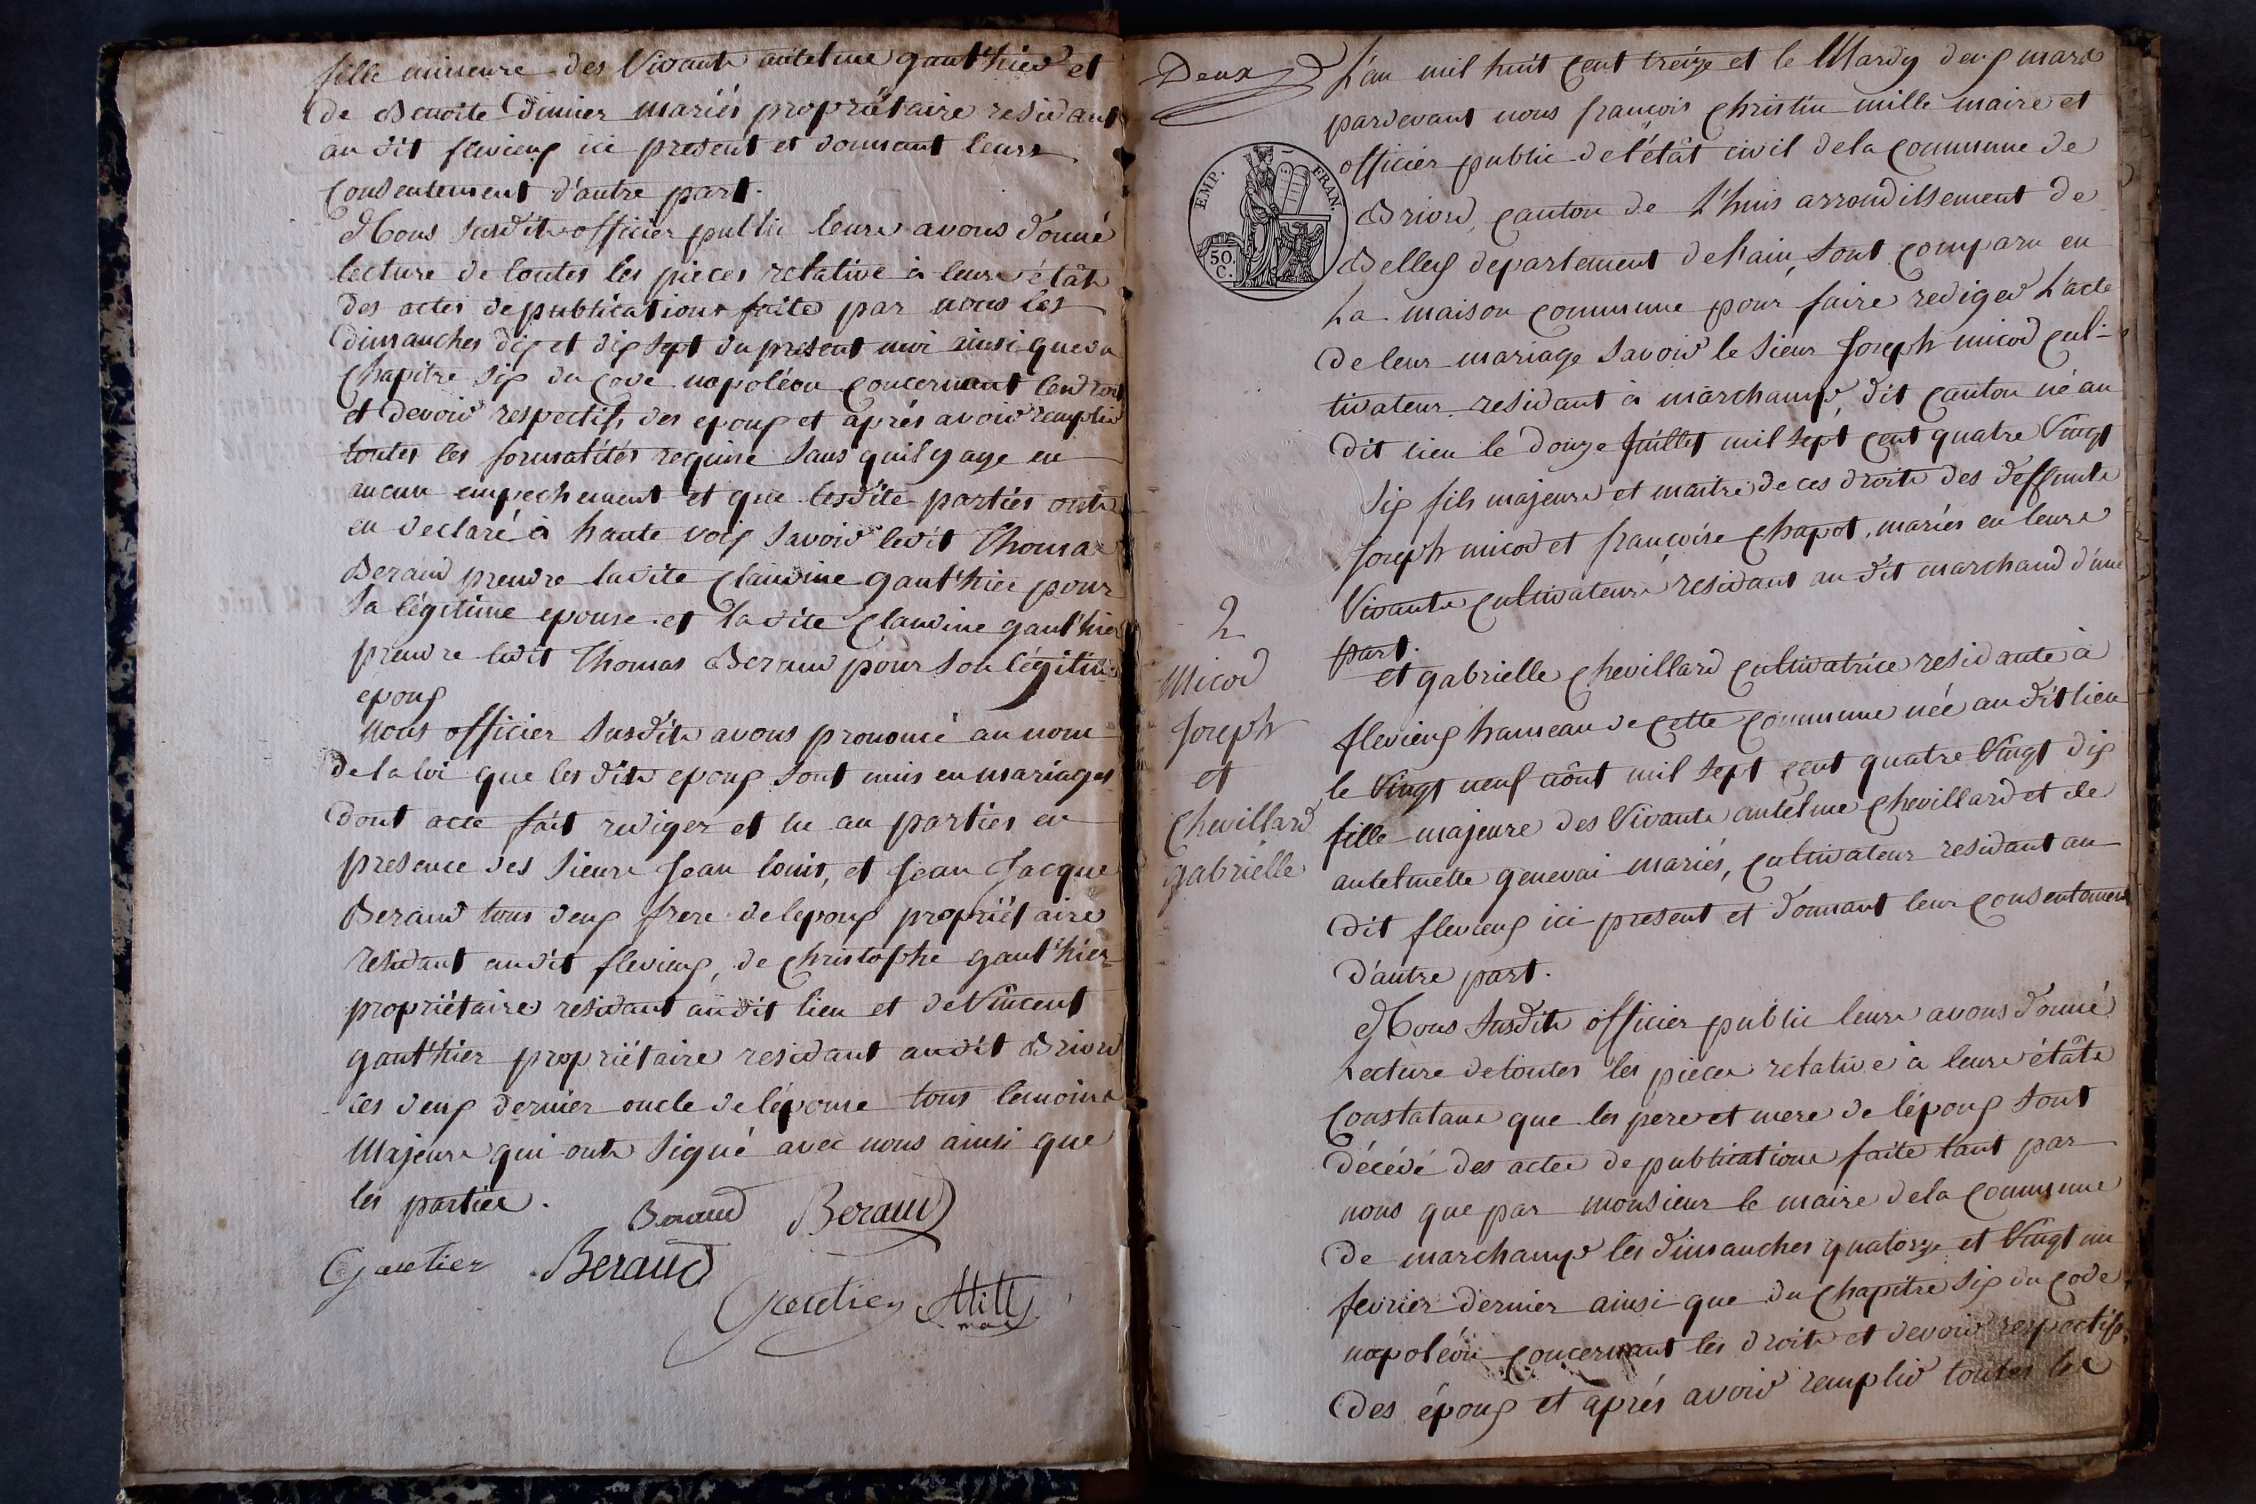 fille mineure des Vivants antelme gant'hier et
de Benoite Dimier mariés propriétaire residant
au dit flevieux ici present et donnant leurs
Consentement d'autre part.
Nous susdits officier public leurs avons donné
lecture de toutes les pieces relative à leurs états
des actes de publications faite par nous les
dimanches dix et dix sept du present moi ainsi que du
Chapitre six du Code napoléon concernant les droit
et devoir respectifs des epoux et aprés avoir remplir
toutes les formalités requise sans quil y aye eu
aucun empechement et que lesdite parties onts
eu declaré à haute voix savoir ledit Thomas
Beraud prendre ladite Claudine gant'hier pour
sa légitime epouse et ladite Claudine gant'hier
prendre ledit Thomas Beraud pour son légitime
epoux
Nous officier susdits avons prononcé au nom
de la loi que les dits epoux sont unis en mariages
dont acte fait rediger et lu au parties en
presence des sieurs Jean louis, et Jean Jacque
Beraud tous deux frere de lepoux propriétaire
residant audit flevieux, de Christophe gant'hier
propriétaire residant audit lieu et de Vincent
gant'hier propriétaire residant audit Briord
ces deux dernier oncle de lépouse tous temoins
Majeurs qui onts signé avec nous ainsi que
les parties.
Beraud Beraud
Gautier Beraud
Gautier Mille
maire
Deux
L'an mil huit cent treize et le Mardy deux mars
pardevant nous françois christin mille maire et
officier public de l'état civil de la commune de
Briord, canton de L'huis arrondissement de
Belley departement de l'ain, sont comparu en
La maison commune pour faire rediger L'acte
de leur mariage savoir le sieur Joseph micod cul-
tivateur residant à marchamp, dit canton né au
dit lieu le douze Juillet mil sept cent quatre Vingt
six fils majeurs et maitre de ces droits des deffunts
Joseph micod et françoise Chapot, mariés en leurs
Vivants cultivateurs residant au dit marchand d'une
part.
et gabrielle Chevillard cultivatrice residante à
flevieux hameau de cette commune née au dit lieu
le Vingt neuf août mil sept cent quatre Vingt dix
fille majeure des Vivants antelme Chevillard et de
antelmette genevai mariés, cultivateur residant au
dit flevieux ici present et donnant leur consentement
d'autre part.
Nous susdits officier public leurs avons donné
Lecture de toutes les pieces relative à leurs états
Constatans que les pere et mere de l'époux sont
décédé des actes de publications faite tant par
nous que par monsieur le maire de la commune
de marchamp les dimanches quatorze et Vingt un
fevrier dernier ainsi que du Chapitre six du Code
napoléon concernant les droits et devoir respectifs
des époux et aprés avoir remplir toutes les
2
Micod
Joseph
et
Chevillard
gabrielle
EMP. FRAN.
50.
C.